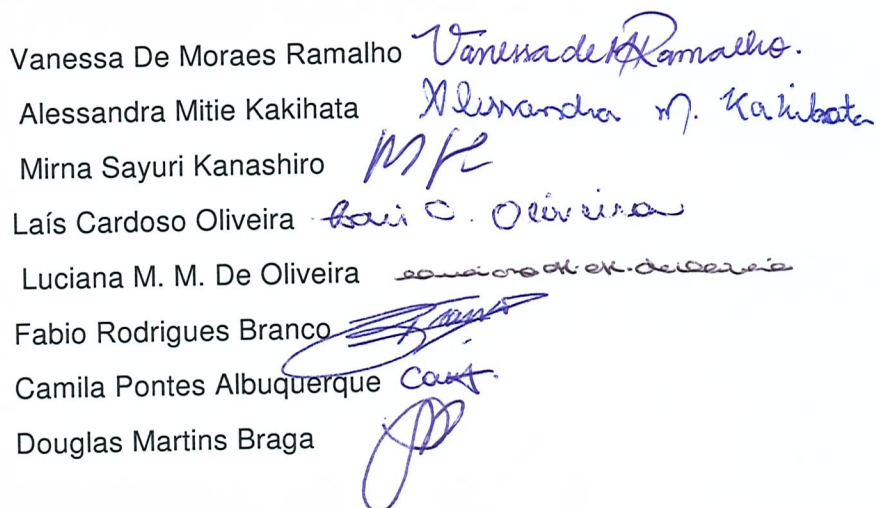 Vanessa De Moraes Ramalho Vanessa de M Ramalho.
Alessandra Mitie Kakihata Alessandra M. Kakihata
Mirna Sayuri Kanashiro
Laís Cardoso Oliveira Laís C. Oliveira
Luciana M. M. De Oliveira
Fabio Rodrigues Branco
Camila Pontes Albuquerque
Douglas Martins Braga